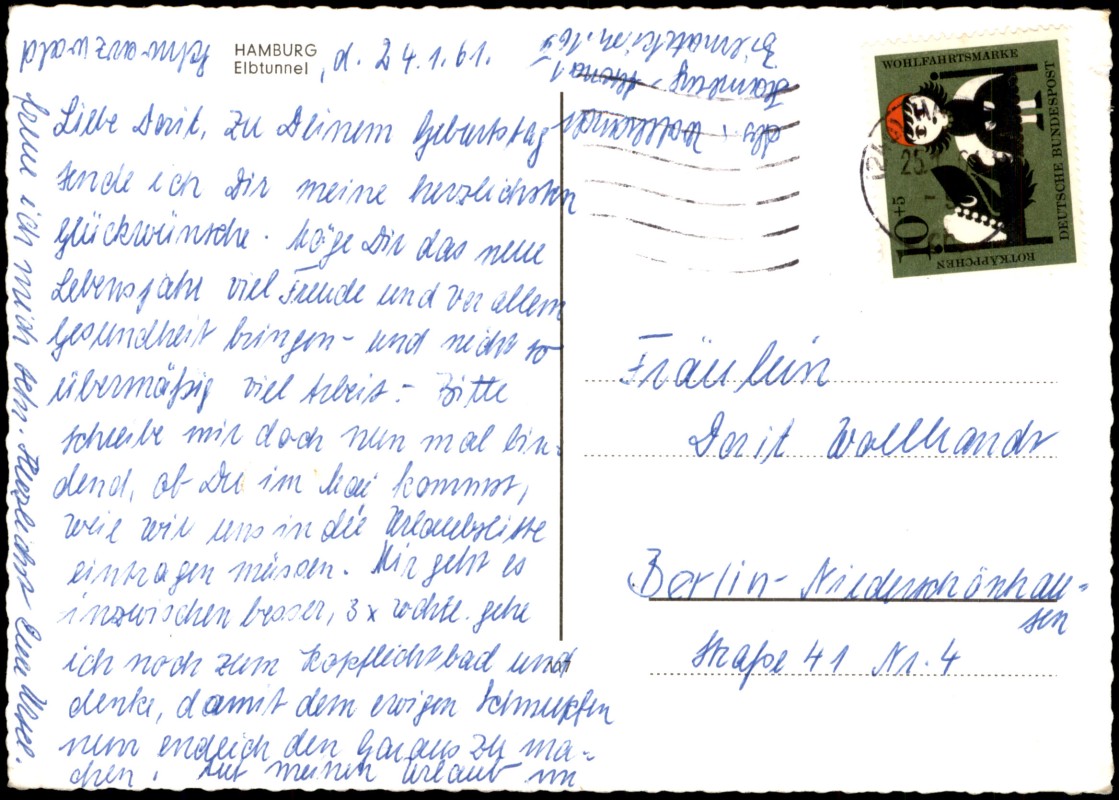 HAMBURG
Elbtunnel, d. 24.1.61.
Liebe Dorit, zu Deinem Geburtstag
sende ich Dir meine herzlichsten
Glückwünsche. Möge Dir das neue
Lebensjahr viel Freude und vor allem
Gesundheit bringen - und nicht so
übermäßig viel Arbeit. - Bitte
schreibe mir doch nun mal bin-
dend, ob Du im Mai kommst,
weil wir uns in die Urlaubsliste
eintragen müssen. Mir geht es
inzwischen besser, 3 x wöchtl. gehe
ich noch zum Kopflichtbad und
denke, damit dem ewigen Schnupfen
nun endlich den Garaus zu ma-
chen. Auf meinen Urlaub im
Schwarzwald
freue ich mich sehr. Herzlichst Eure Ursel.
Abs.:
Hamburg - Altona 1
WOHLFAHRTSMARKE
DEUTSCHE BUNDESPOST
ROTKÄPPCHEN
10+5
25.1
Fräulein
Dorit
Berlin - Niederschönhau-
sen
Straße 41 Nr. 4